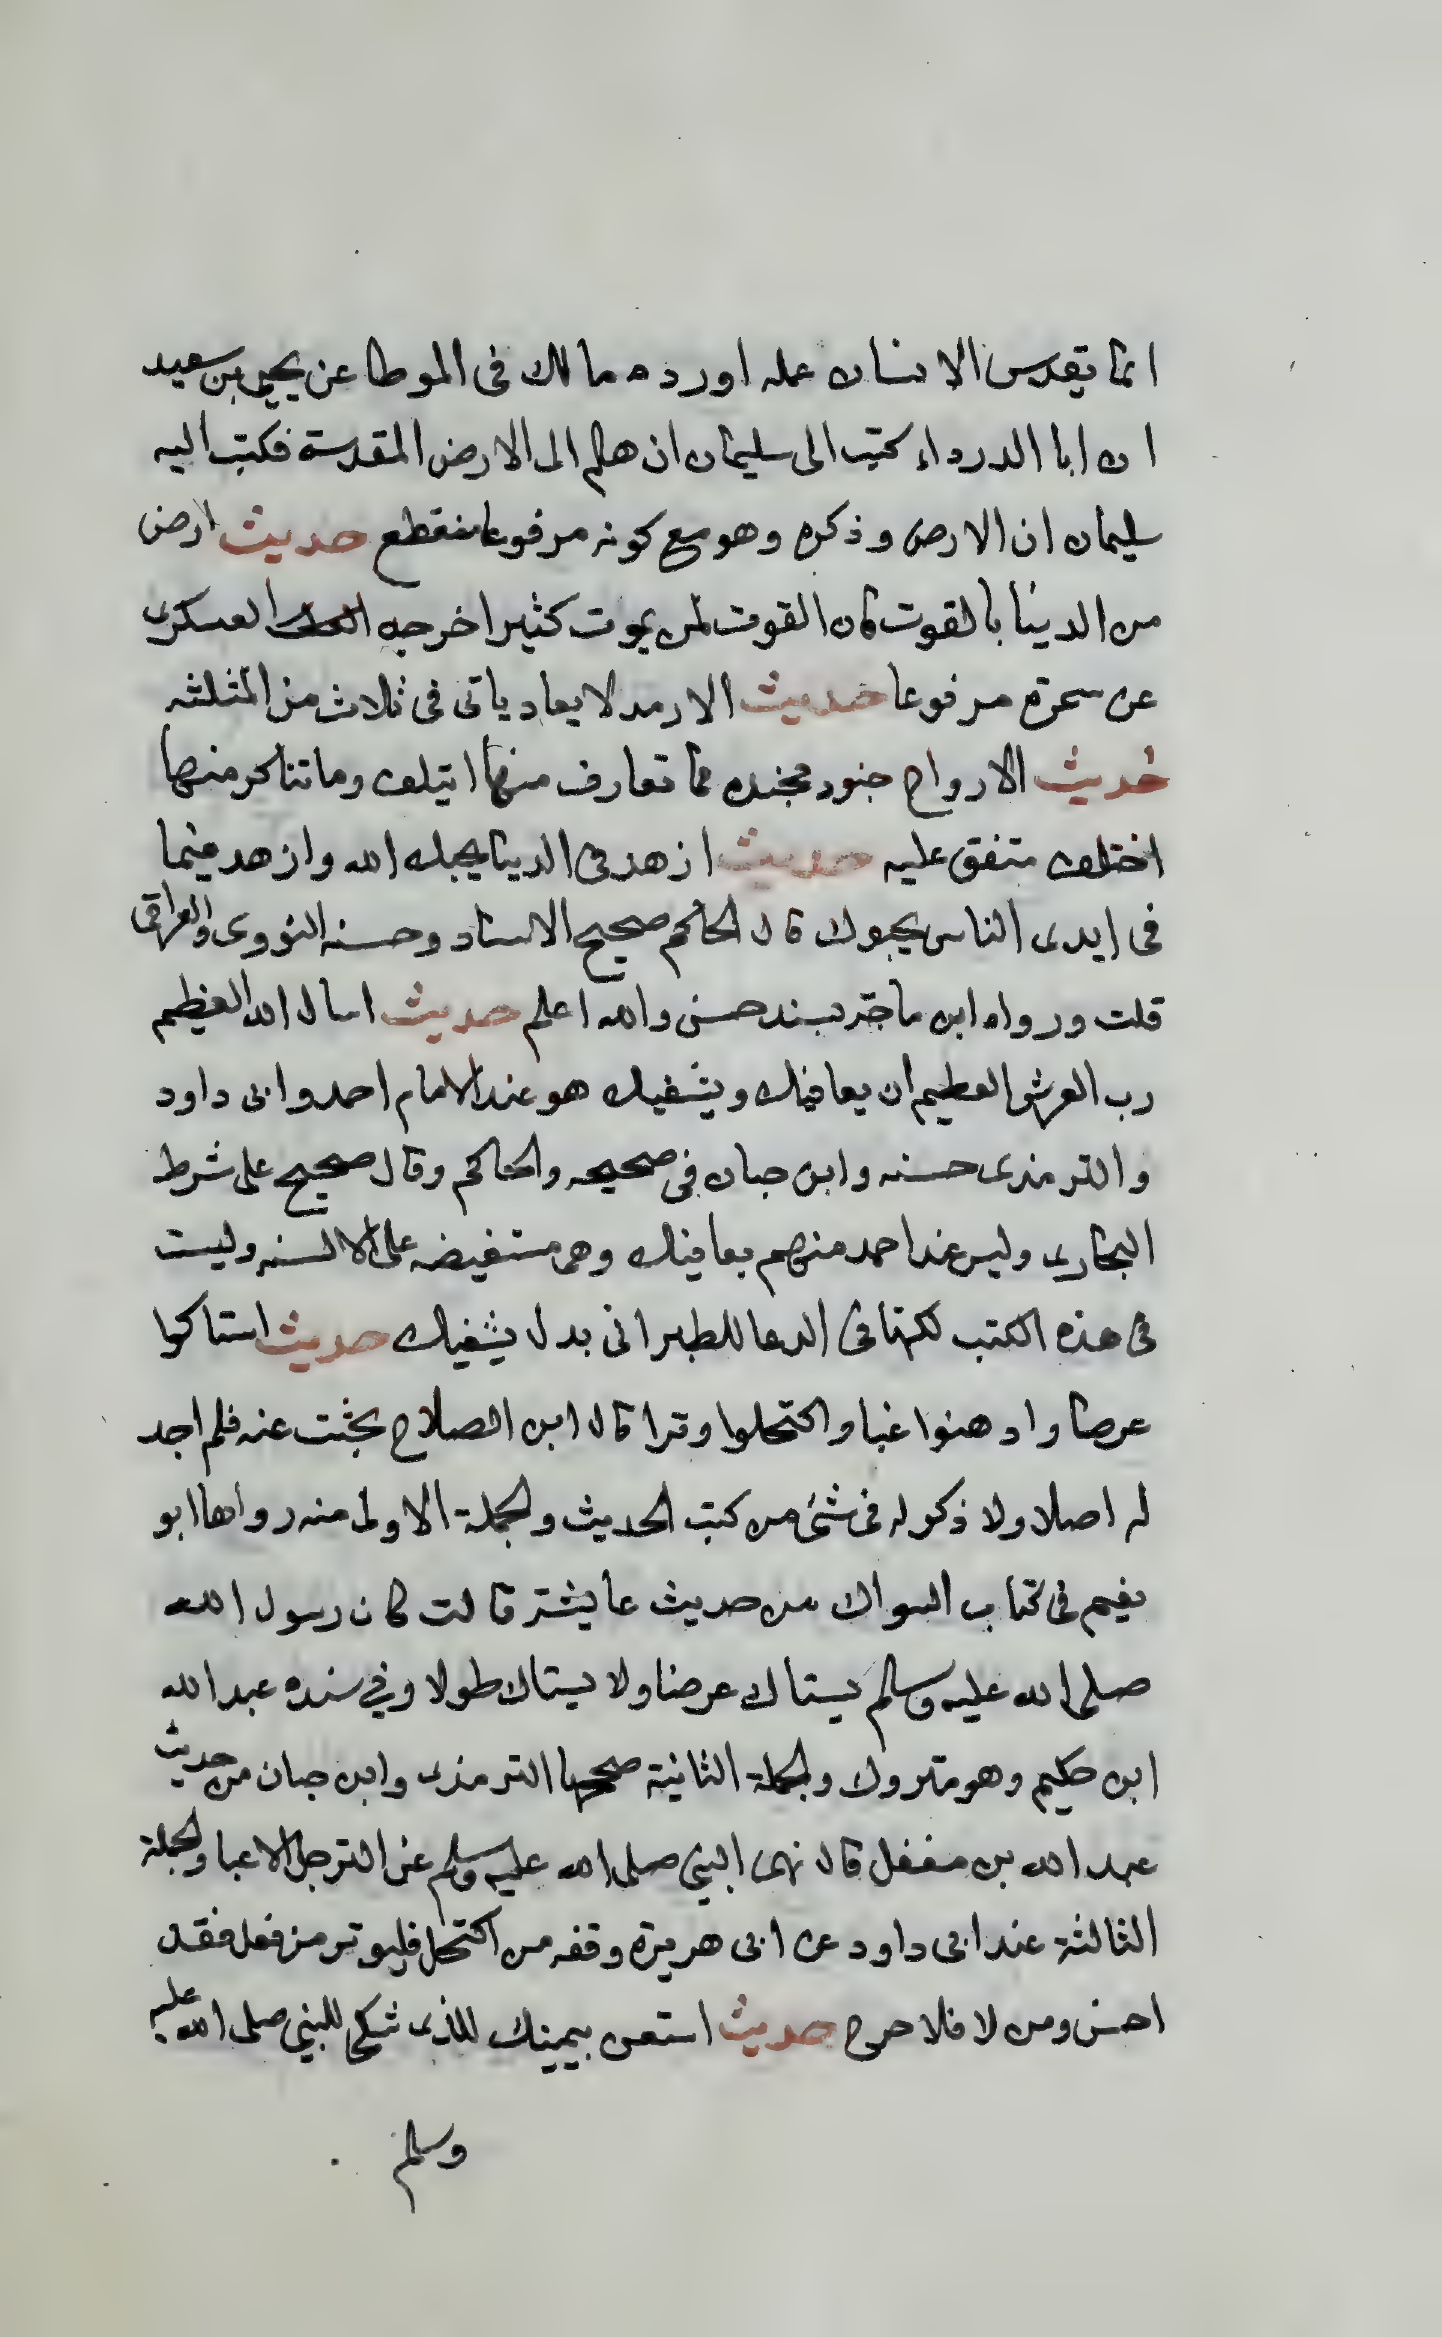 انما يقدس الانسان عمله اورده مالك فى الموطا عن يحيى بن سعيد
ان ابا الدرداء كتب الى سليمان ان هلم الى الارض المقدسة فكتب اليه
سليمان ان الارض وذكره وهو مع كونه مرفوعا منقطع حديث ارض
من الدنيا بالقوت فان القوت لمن يموت كثير اخرجه العسكرى
عن سمرة مرفوعا حديث الارمد لا يعاد ياتى فى ثلاث من المثلثه
حديث الارواح جنود مجنده فما تعارف منها ايتلف وما تناكر منها
اختلف متفق عليه حديث ازهد فى الدنيا يحبك الله وازهد فيما
فى ايدى الناس يحبوك قال الحاكم صحيح الاسناد وحسنه النووى والعراقى
قلت ورواه ابن ماجة بسند حسن والله اعلم حديث اسال الله العظيم
رب العرش العظيم ان يعافيك ويشفيك هو عند الامام احمد وابى داود
والترمذى حسنه وابن حبان فى صحيحه والحاكم وقال صحيح على شرط
البخارى وليس عند احمد منهم يعافيك وهى مستفيضه على الالسنه وليست
فى هذه الكتب لكنها فى الدعا للطبرانى بدل يشفيك حديث استاكوا
عرضا وادهنوا غبا واكتحلوا وترا قال ابن الصلاح بحثت عنه فلم اجد
له اصلا ولا ذكر له فى شئ من كتب الحديث والجملة الاولى منه رواها ابو
نعيم فى كتاب السواك من حديث عايشة قالت كان رسول الله
صلى الله عليه وسلم يستاك عرضا ولا يستاك طولا وفي سنده عبد الله
ابن حكيم وهو متروك والجملة الثانية صححها الترمذى وابن حبان من حديث
عبد الله بن مغفل قال نهى النبى صلى الله عليه وسلم عن الترجل الا غبا والجملة
الثالثة عند ابى داود عن ابى هريرة وقفه من اكتحل فليوتر من فعل فقد
احسن ومن لا فلا حرج حديث استعن بيمينك للذى شكى للنبى صلى الله عليه
وسلم